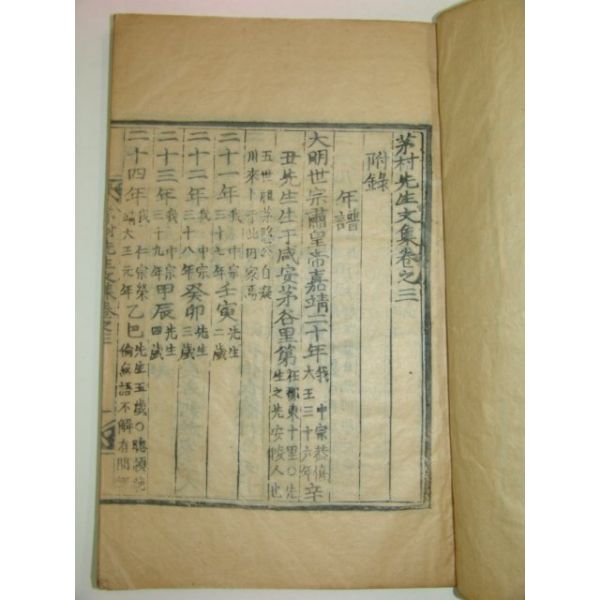 茅村先生文集卷之三
附錄
年譜
大明世宗肅皇帝嘉靖二十年我中宗恭僖大王三十六年辛
丑先生生于咸安茅谷里第在郡東十里○先生之先安陵人也
五世祖
川來卜于此因家焉
二十一年我中宗三十七年壬寅先生二歲
二十二年我中宗三十八年癸卯先生三歲
二十三年我中宗三十九年甲辰先生四歲
二十四年我仁宗榮靖大王元年乙巳先生五歲○聰穎絶倫每語不解有問
茅村先生文集卷之三